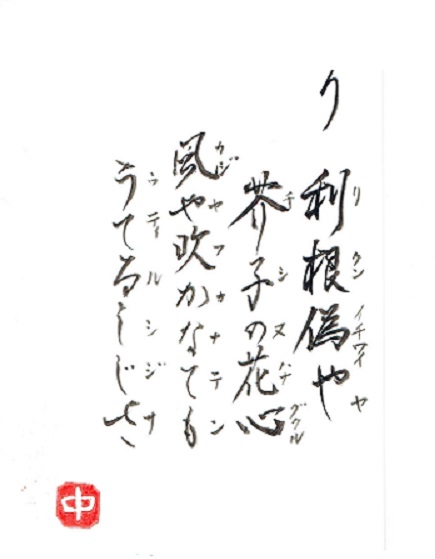 り
利根偽や
リクンイチワイヤ
芥子の花心
チシヌバナグクル
風や吹かなても
カジヤフカナテン
うてるしじさ
ウティルシジサ
中